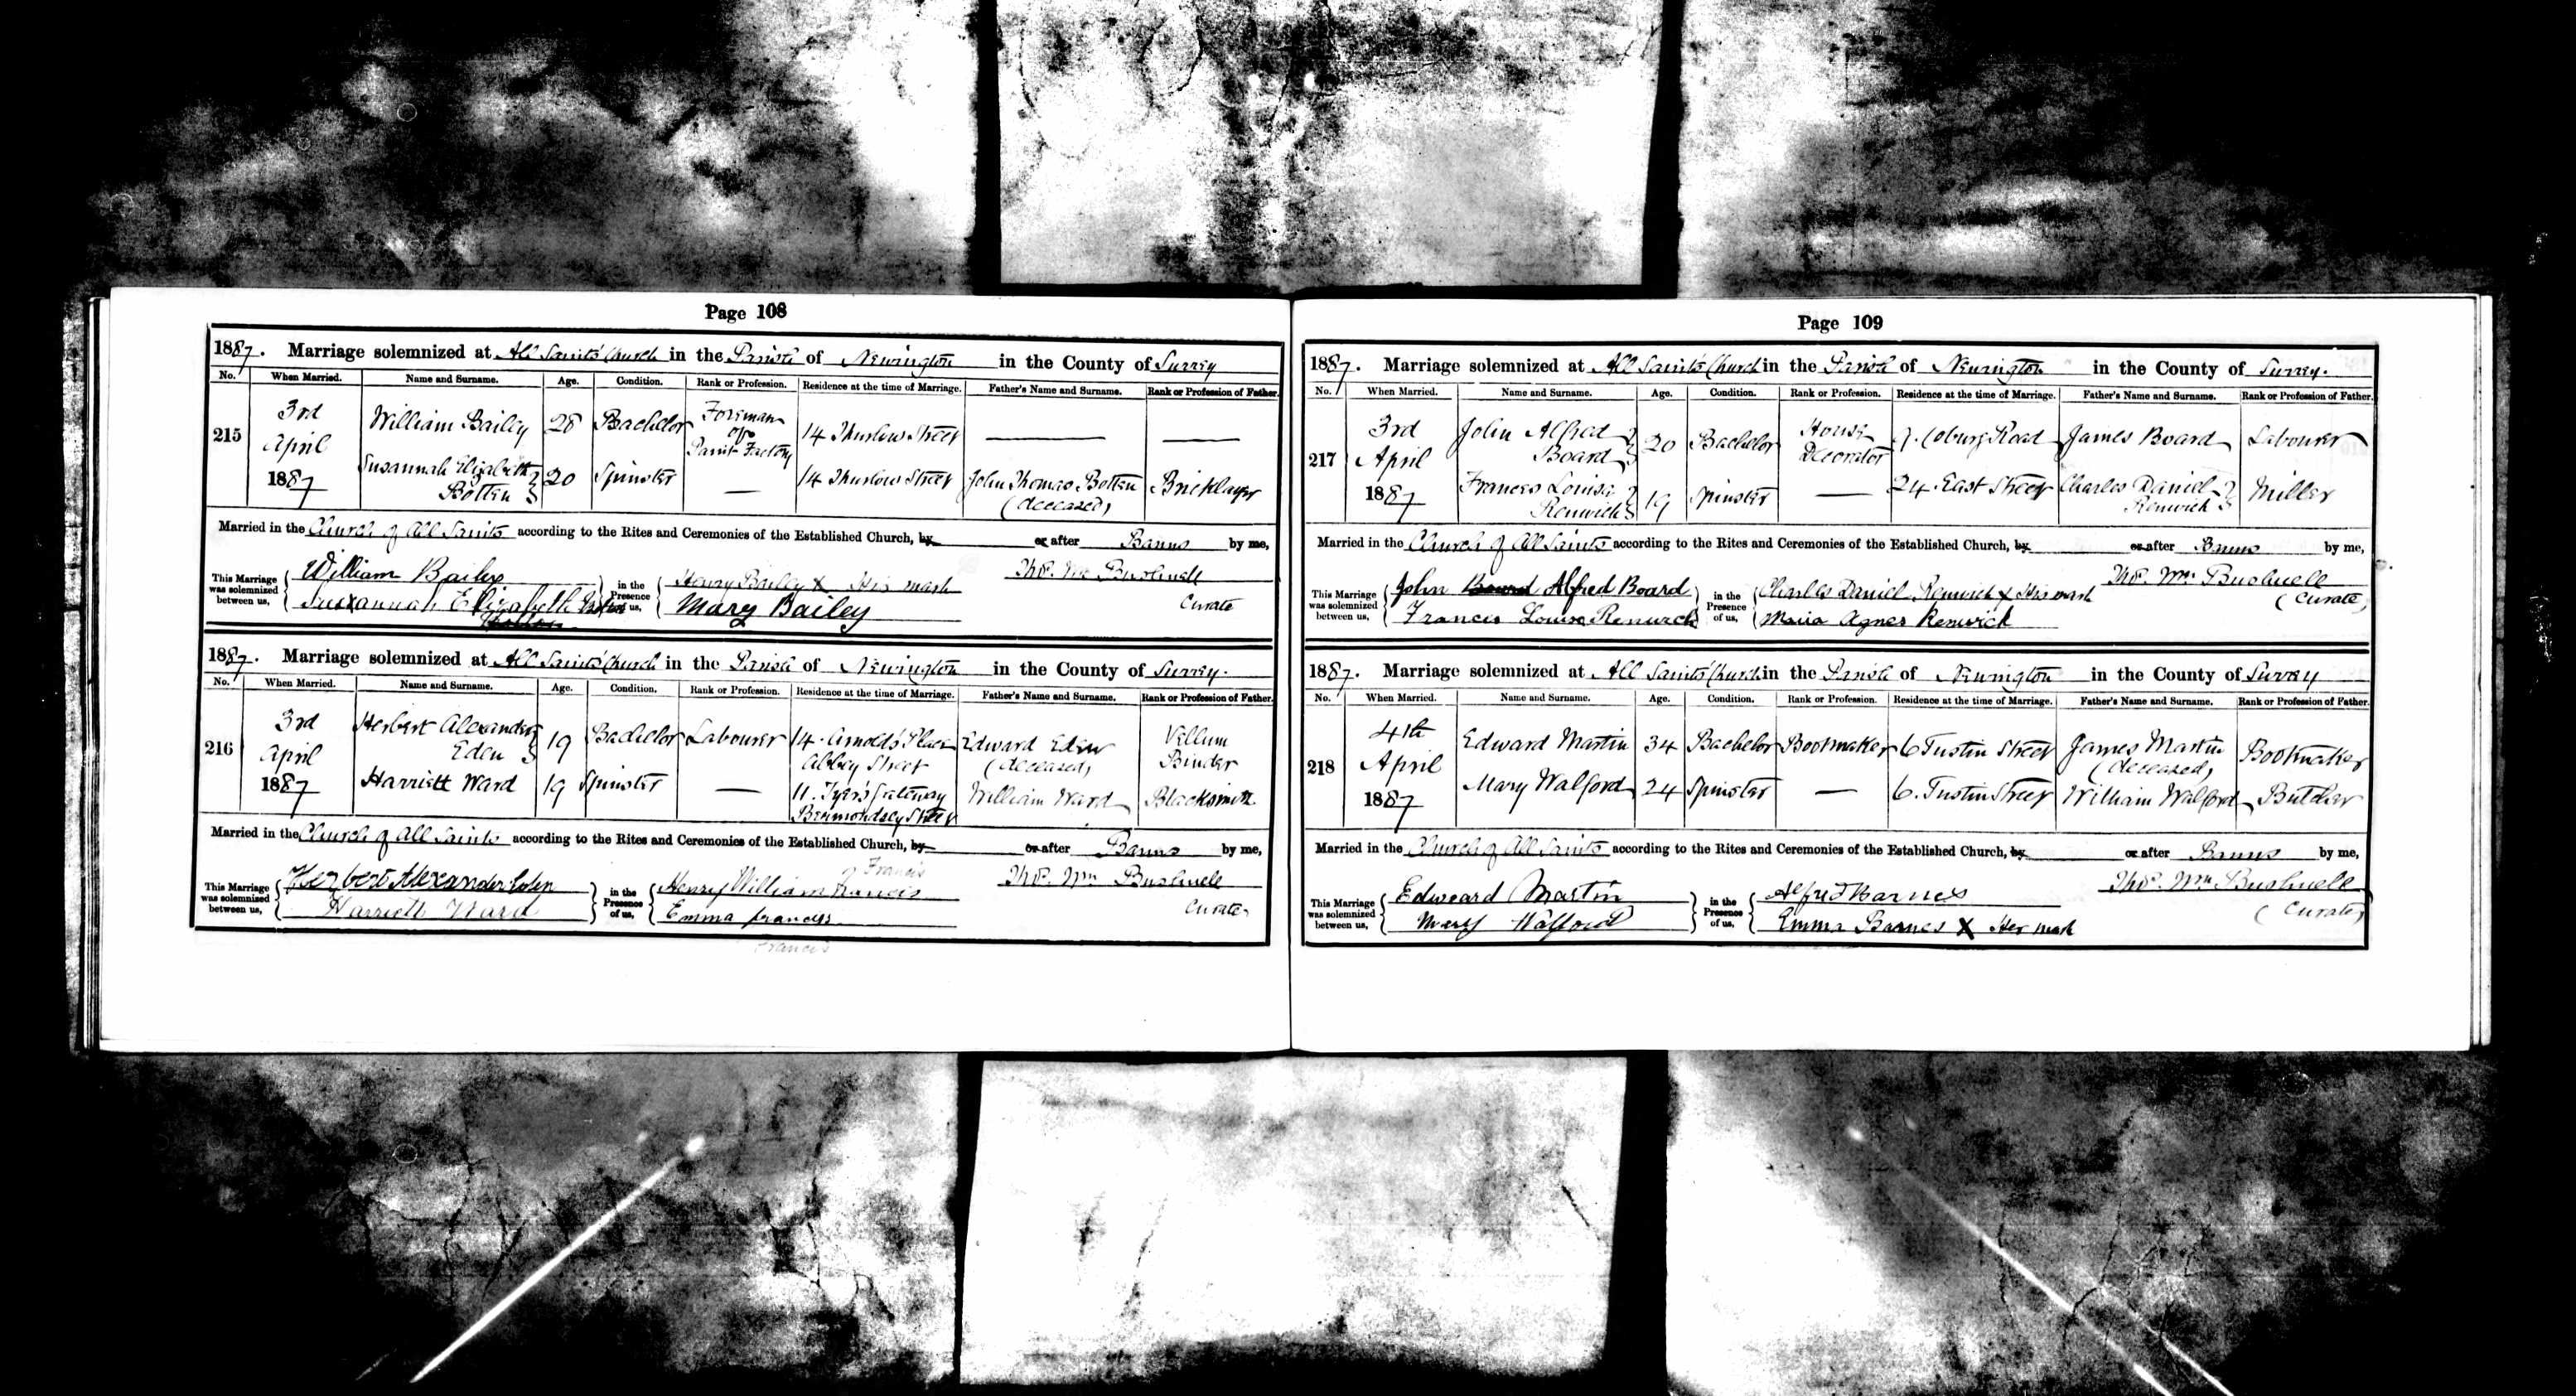 Page 108
1887. Marriage solemnized at All Saints' Church in the Parish of Newington in the County of Surrey
No. When Married. Name and Surname. Age. Condition. Rank or Profession. Residence at the time of Marriage. Father's Name and Surname. Rank or Profession of Father.
215 3rd April 1887
William Bailey 28 Bachelor Foreman of Paint Factory 14 Thurlow Street — —
Susannah Elizabeth Botten 20 Spinster — 14 Thurlow Street John Thomas Botten (deceased) Bricklayer
Married in the Church of All Saints according to the Rites and Ceremonies of the Established Church, by or after Banns by me,
This Marriage was solemnized between us, William Bailey in the Presence of us, Henry Bailey X His mark Thos. Wm Bushnell
Susannah Elizabeth Mary Bailey Curate
1887. Marriage solemnized at All Saints' Church in the Parish of Newington in the County of Surrey.
No. When Married. Name and Surname. Age. Condition. Rank or Profession. Residence at the time of Marriage. Father's Name and Surname. Rank or Profession of Father.
216 3rd April 1887
Herbert Alexander Eden 19 Bachelor Labourer 14. Arnold's Place Abbey Street Edward Eden (deceased) Vellum Binder
Harriett Ward 19 Spinster — 11. Tyers Gateway Bermondsey Street William Ward Blacksmith
Married in the Church of All Saints according to the Rites and Ceremonies of the Established Church, by or after Banns by me,
Francis
This Marriage was solemnized between us, Herbert Alexander Eden in the Presence of us, Henry William Francis Thos. Wm Bushnell
Harriett Ward Emma francis Curate
Francis
Page 109
1887. Marriage solemnized at All Saints' Church in the Parish of Newington in the County of Surrey.
No. When Married. Name and Surname. Age. Condition. Rank or Profession. Residence at the time of Marriage. Father's Name and Surname. Rank or Profession of Father.
217 3rd April 1887
John Alfred Board 20 Bachelor House Decorator 7. Coburg Road James Board Labourer
Frances Louisa Renwick 19 Spinster — 24 East Street Charles Daniel Renwick Miller
Married in the Church of All Saints according to the Rites and Ceremonies of the Established Church, by or after Banns by me,
This Marriage was solemnized between us, John Board Alfred Board in the Presence of us, Charles Daniel Renwick X His mark Thos. Wm Bushnell
Francis Louisa Renwick Maria Agnes Renwick Curate
1887. Marriage solemnized at All Saints' Church in the Parish of Newington in the County of Surrey
No. When Married. Name and Surname. Age. Condition. Rank or Profession. Residence at the time of Marriage. Father's Name and Surname. Rank or Profession of Father.
218 4th April 1887
Edward Martin 34 Bachelor Bootmaker 6 Tustin Street James Martin (deceased) Bootmaker
Mary Walford 24 Spinster — 6. Tustin Street William Walford Butcher
Married in the Church of All Saints according to the Rites and Ceremonies of the Established Church, by or after Banns by me,
This Marriage was solemnized between us, Edward Martin in the Presence of us, Alfred Barnes Thos. Wm Bushnell
Mary Walford Emma Barnes X Her mark Curate